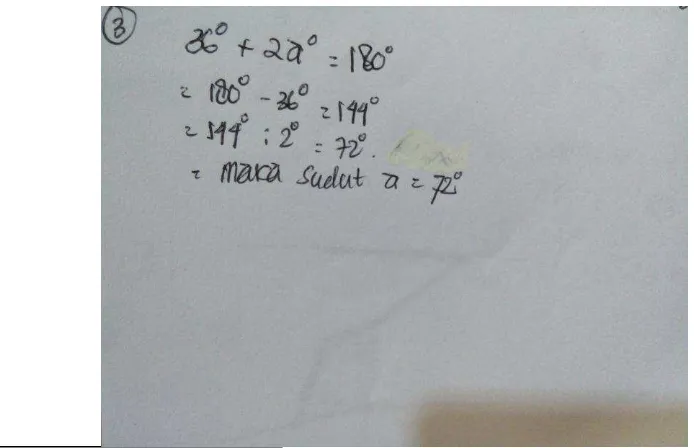 3
36° + 2a° = 180°
= 180° - 36° = 144°
= 144° : 2° = 72°.
= maka sudut a = 72°